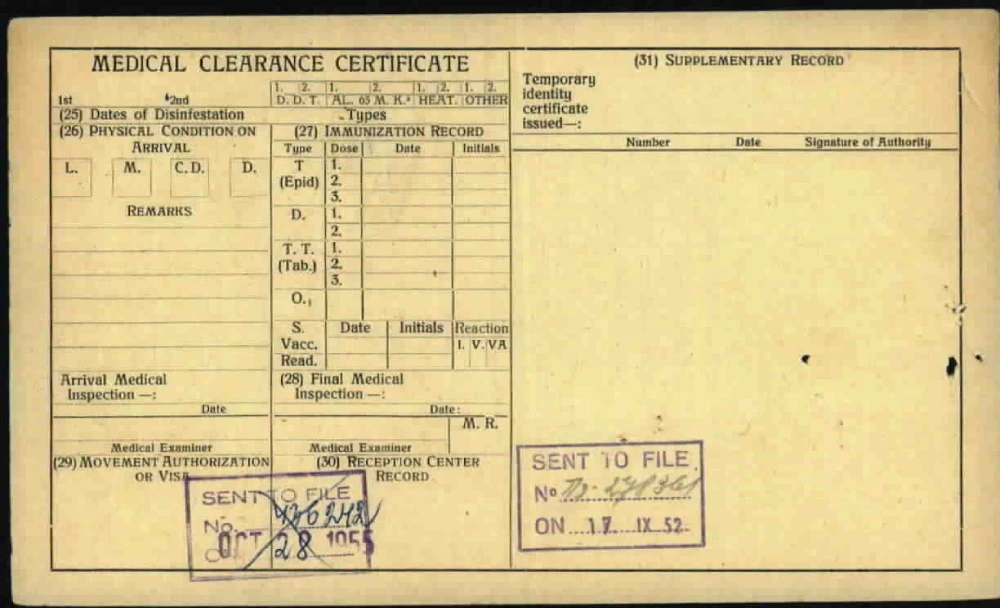 MEDICAL CLEARANCE CERTIFICATE
1. 2. 1. 2. 1. 2. 1. 2.
1st 2nd D. D. T. AL. 63 M. K. HEAT. OTHER
(25) Dates of Disinfestation Types
(26) PHYSICAL CONDITION ON
ARRIVAL
L. M. C. D. D.
REMARKS
Arrival Medical
Inspection —:
Date
Medical Examiner
(27) IMMUNIZATION RECORD
Type Dose Date Initials
T 1.
(Epid) 2.
3.
D. 1.
2.
T. T. 1.
(Tab.) 2.
3.
O.
S. Date Initials Reaction
Vacc. I. V. VA
Read.
(28) Final Medical
Inspection —:
Date:
M. R.
Medical Examiner
(29) MOVEMENT AUTHORIZATION
OR VISA
(30) RECEPTION CENTER
RECORD
SENT TO FILE
No. 436242
OCT 28 1955
(31) SUPPLEMENTARY RECORD
Temporary
identity
certificate
issued—:
Number Date Signature of Authority
SENT TO FILE
No
ON 17 IX 52